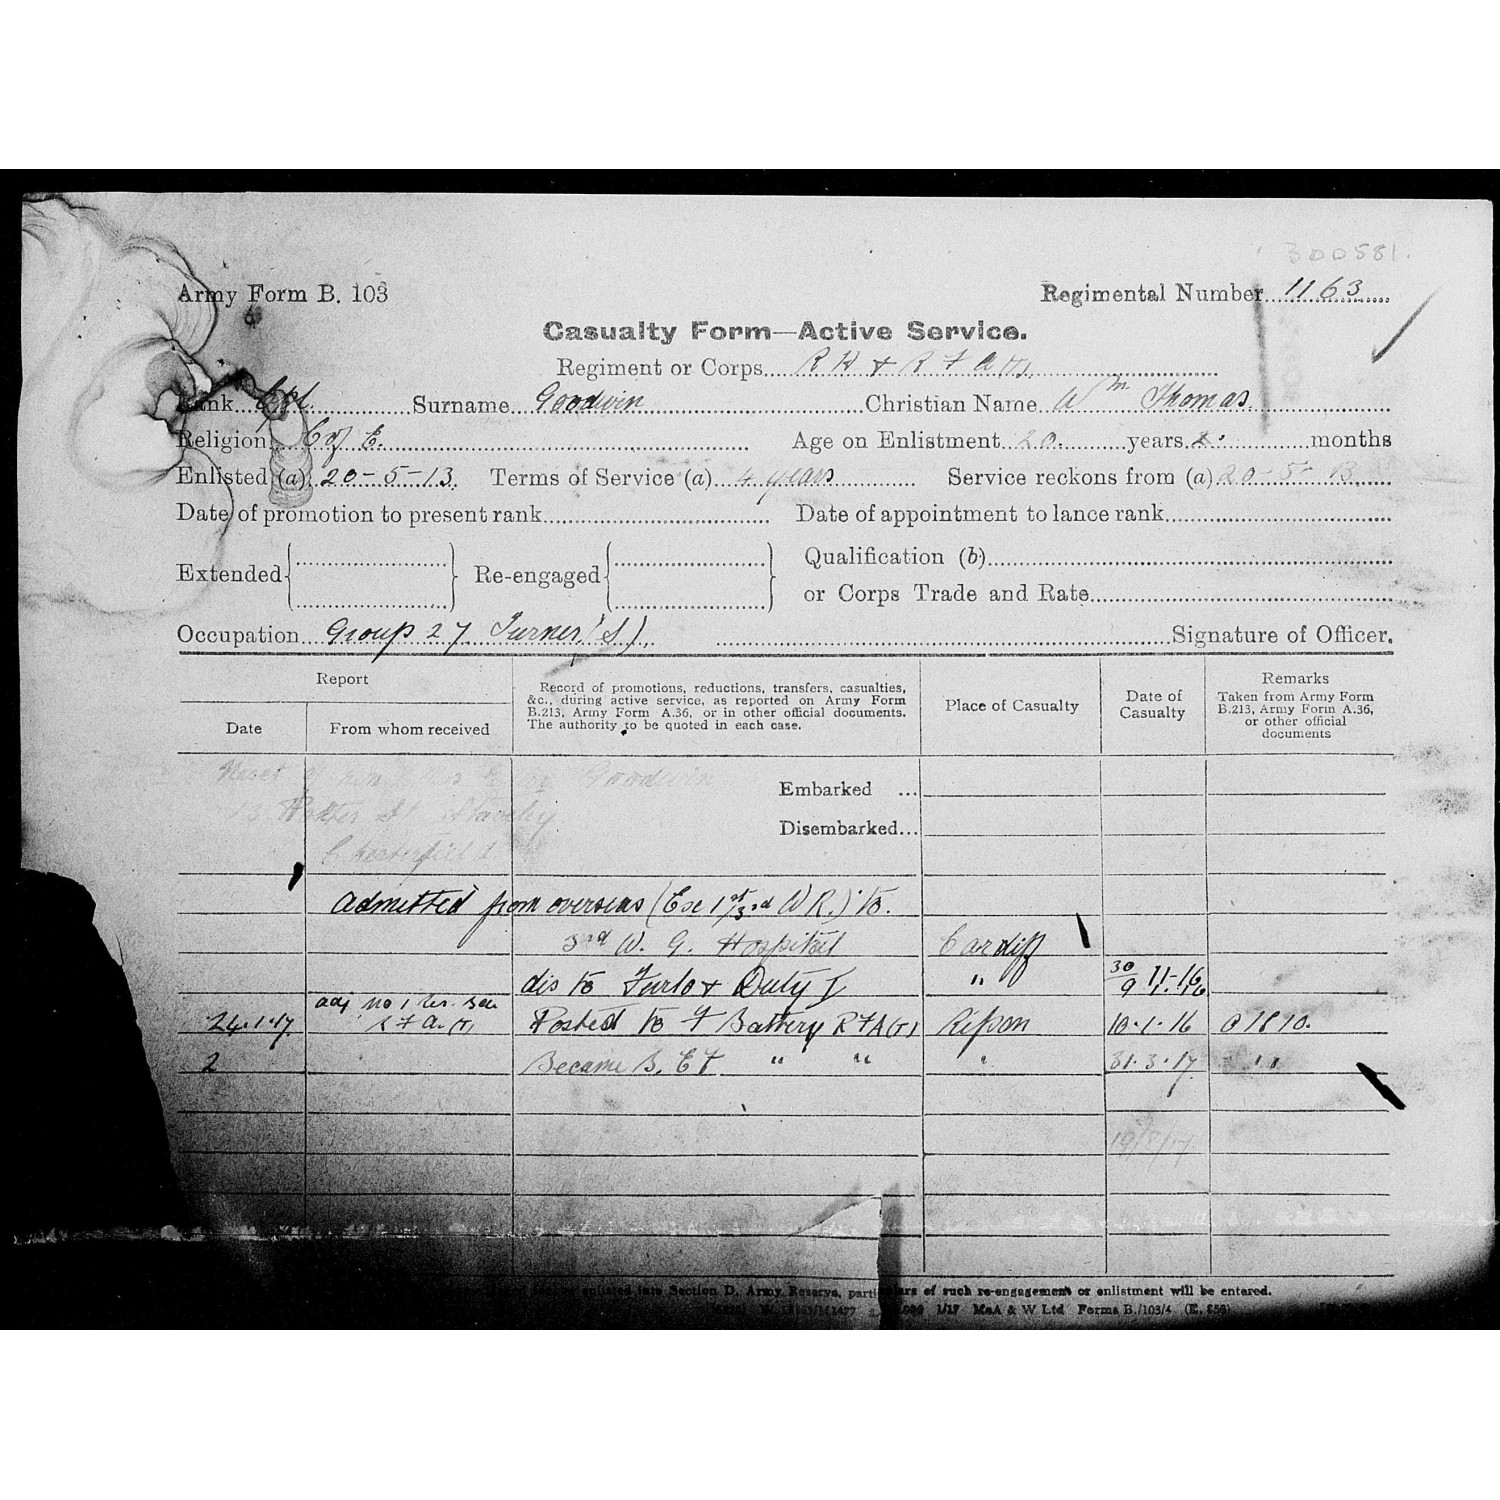 300581.
Army Form B. 103
Regimental Number 1163
Casualty Form—Active Service.
Regiment or Corps R H & R F A (T)
Rank Cpl. Surname Goodwin Christian Name Wm Thomas
Religion C of E. Age on Enlistment 20. years 2. months
Enlisted (a) 20-5-13. Terms of Service (a) 4 years Service reckons from (a) 20-5-13
Date of promotion to present rank Date of appointment to lance rank
Extended Re-engaged Qualification (b)
or Corps Trade and Rate
Occupation Group 27 Turner (S) Signature of Officer.
Report
Date From whom received
Record of promotions, reductions, transfers, casualties,
&c., during active service, as reported on Army Form
B.213, Army Form A.36, or in other official documents.
The authority to be quoted in each case.
Place of Casualty
Date of
Casualty
Remarks
Taken from Army Form
B.213, Army Form A.36,
or other official
documents
Goodwin
Embarked ...
St Staveley
Disembarked...
Chesterfield
Admitted from overseas (Ese 1st/3rd W R.) to.
3rd W. G. Hospital Cardiff
dis to Furlo & Duty I " 30/9 11-16
adj no 1 Res.
24.1.17 R F A (T) Posted to F Battery R F A (T) Ripon 10.1.16 01810.
2 Became B. Ef " " " 31.3.17 "
19/8/17
enlisted into Section D, Army Reserve, particulars of such re-engagement or enlistment will be entered.
1/17 McA & W Ltd Forms B./103/4